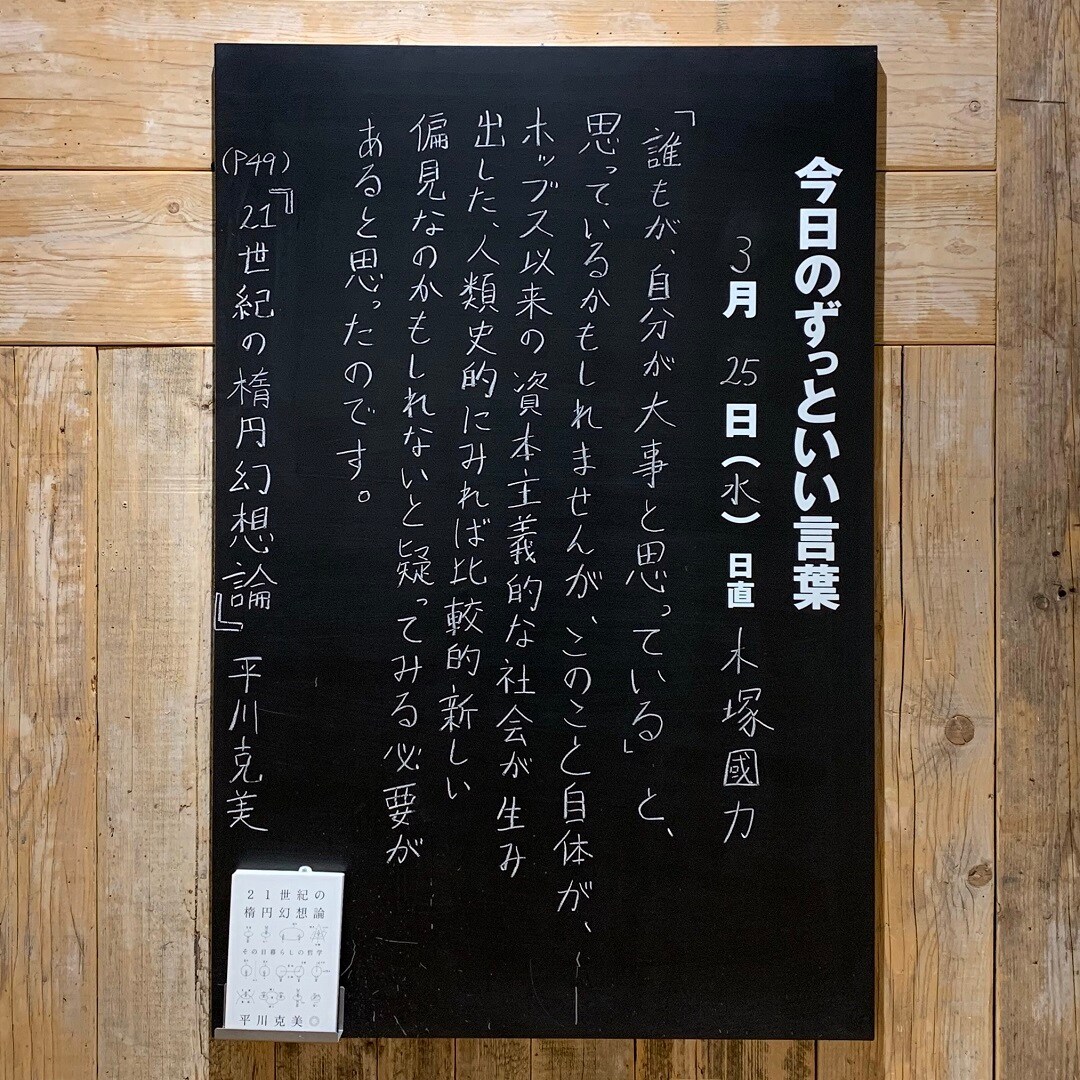 今日のずっといい言葉
3月25日(水)日直 木塚國力
「誰もが、自分が大事と思っている」と、
思っているかもしれませんが、このこと自体が、
ホッブス以来の資本主義的な社会が生み
出した、人類史的にみれば比較的新しい
偏見なのかもしれないと疑ってみる必要が
あると思ったのです。
(P49)『21世紀の楕円幻想論』平川克美
21世紀の
楕円幻想論
その日暮らしの哲学
平川克美